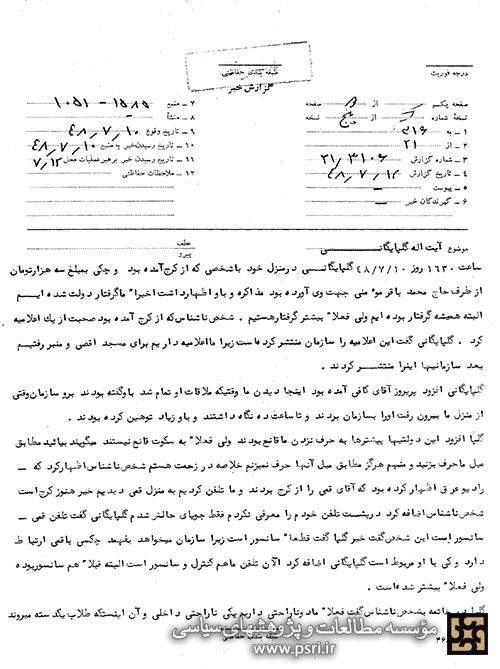 طبقه بندی حفاظتی
گزارش خبر
درجه فوریت
صفحه یکم از ۵ صفحه
نسخه از پنج نسخه
۱ - به ۳۱۶
۲ - از ۲۱
۳ - شماره گزارش ۲۱/۳۱۰۶
۴ - تاریخ گزارش ۴۸/۷/۱۲
۵ - پیوست
۶ - گیرندگان خبر
۷ - منبع ۱۵۸۵ - ۱۰۵۱
۸ - منشأ
۹ - تاریخ وقوع ۴۸/۷/۱۰
۱۰ - تاریخ رسیدن خبر به منبع ۴۸/۷/۱۰
۱۱ - تاریخ رسیدن خبر برهبر عملیات محل ۷/۱۲
۱۲ - ملاحظات حفاظتی
موضوع آیت اله گلپایگانی
عطف
پیرو
ساعت ۱۶۳۰ روز ۴۸/۷/۱۰ گلپایگانی درمنزل خود باشخصی که از کرج آمده بود و چکی بمبلغ سه هزارتومان
از طرف حاج محمد باقر مومنی جهت وی آورده بود مذاکره و باو اظهارداشت اخیرا" ماگرفتار دولت شده ایم
البته همیشه گرفتار بوده ایم ولی فعلا" بیشتر گرفتارهستیم . شخص ناشناس که از کرج آمده بود صحبت از یك اعلامیه
کرد . گلپایگانی گفت این اعلامیه را سازمان منتشر کرده است زیرا مااعلامیه داریم برای مسجد اقصی و منبر رفتیم
بعد سازمانیها اینرا منتشر کردند .
گلپایگانی افزود پریروز آقای کافی آمده بود اینجا دیدن ما وقتیکه ملاقات او تمام شد باوگفته بودند برو سازمان وقتی
از منزل ما بیرون رفت اورا بسازمان بردند و تاساعت ده نگاه داشتند و باو زیاد توهین کرده بودند .
گلپا افزود این دولتیها پیشترها به حرف نزدن ماقانع بودند ولی فعلا" به سکوت قانع نیستند میگویند بیائید مطابق
میل ماحرف بزنید و منهم هرگز مطابق میل آنها حرف نمیزنم خلاصه در زحمت هستم شخص ناشناس اظهارکرد که
رادیو عراق اظهار کرده بود که آقای قمی را از کرج بردند و ما تلفن کردیم به منزل قمی دیدیم خیر هنوز کرج است
شخص ناشناس اضافه کرد درپشت تلفن خودم را معرفی نکردم فقط جویای حالش شدم گلپایگانی گفت تلفن قمی
سانسور است این شخص گفت خیر گلپا گفت قطعا" سانسور است زیرا سازمان میخواهد بفهمد چکسی باقمی ارتباط
دارد و کی با او مربوط است گلپایگانی اضافه کرد الآن تلفن ماهم کنترل و سانسور است البته قبلا" هم سانسوربوده
ولی فعلا" بیشتر شده است .
گلپا درخاتمه بشخص ناشناس گفت فعلا" مادوناراحتی داریم یکی ناراحتی داخلی و آن اینستکه طلاب یکدسته میروند
طبقه بندی حفاظتی
مؤسسه مطالعات و پژوهشهای سیاسی
www.psri.ir